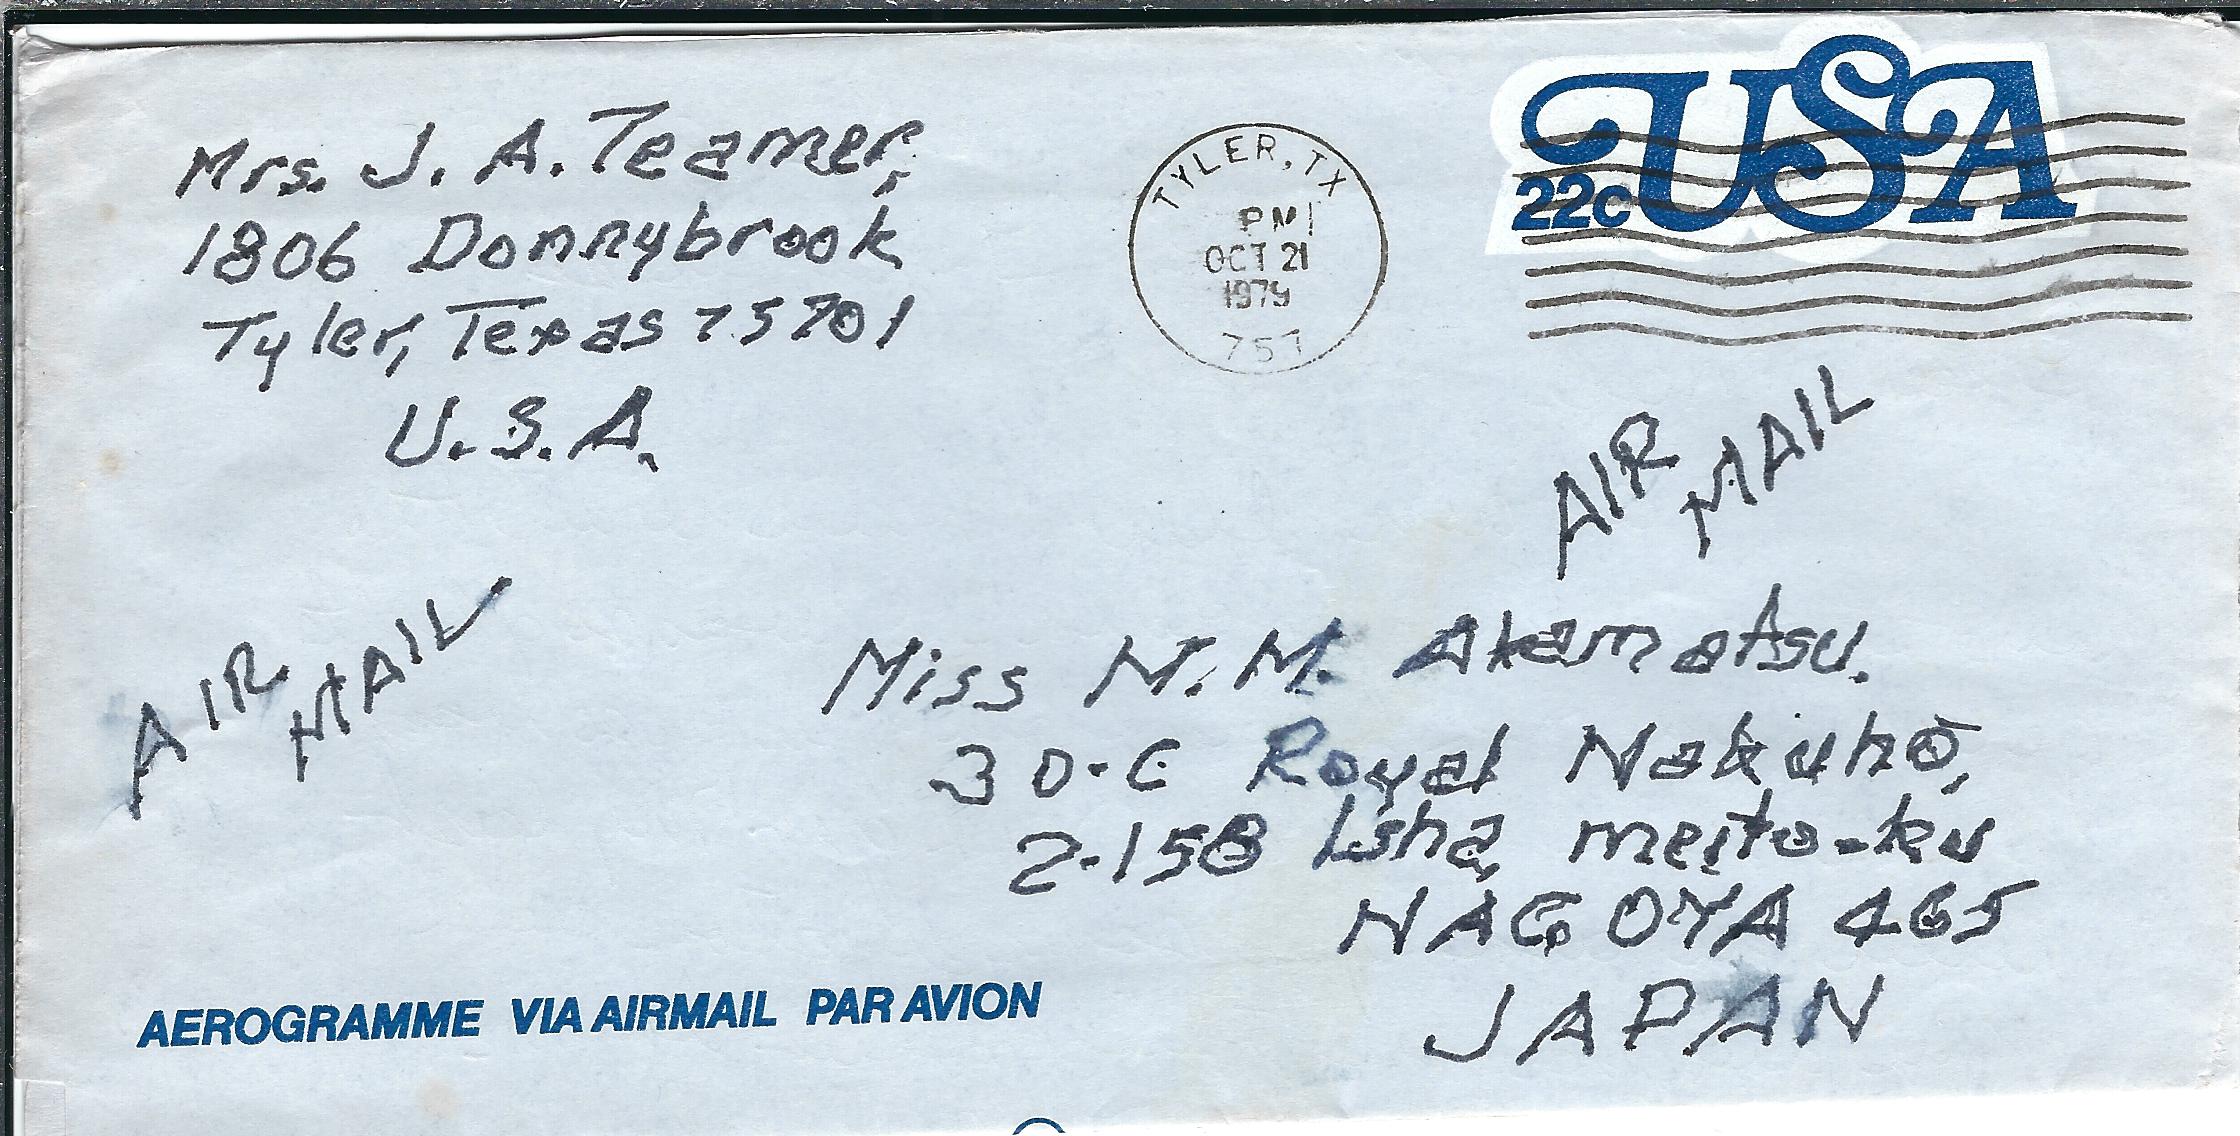 Mrs. J. A. Teamer,
1806 Donnybrook
Tyler, Texas 75701
U.S.A.
TYLER, TX
PM
OCT 21
1979
757
USA
22c
AIR MAIL
AIR MAIL
Miss N. M. Akamatsu.
3 D-C Royal Nakuhō,
2-158 Isha, meito-ku
NAGOYA 465
JAPAN
AEROGRAMME VIA AIRMAIL PAR AVION